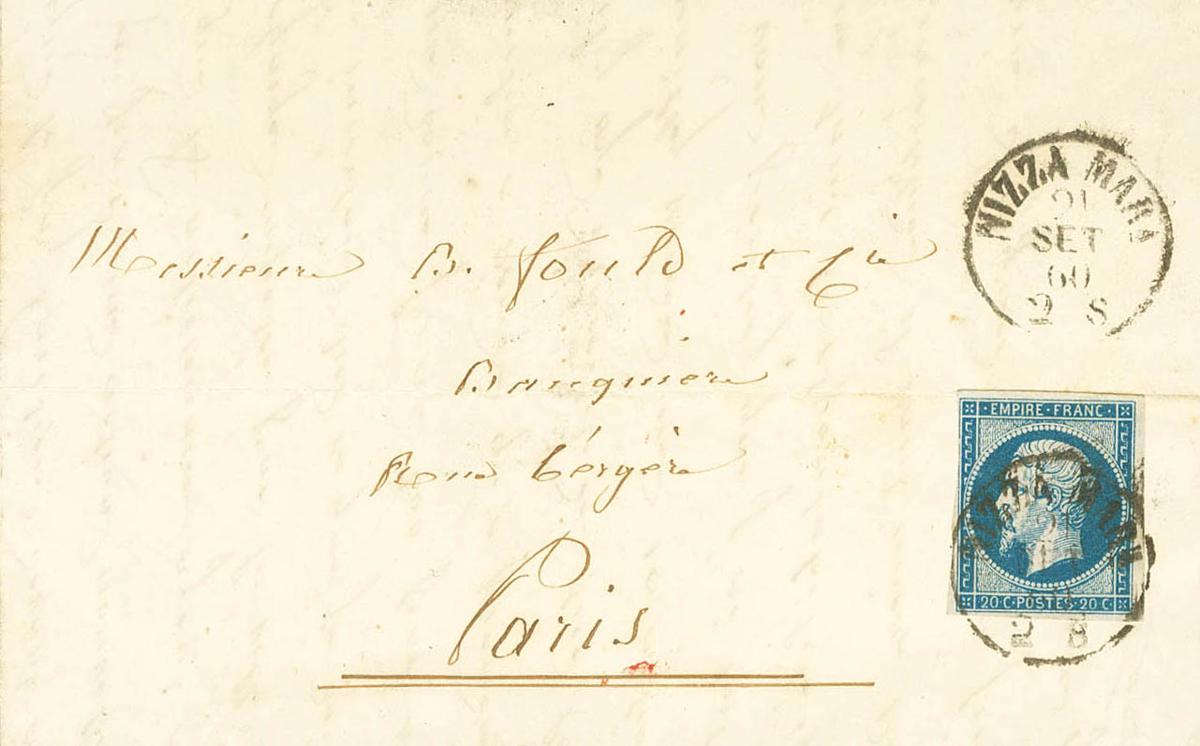 NIZZA MARA
21
SET
60
2 8
Messieurs B. Fould et Cie
Banquiers
Rue bérgère
Paris
EMPIRE · FRANC ·
NIZZA MARA
21
20 C · POSTES · 20 C
2 8